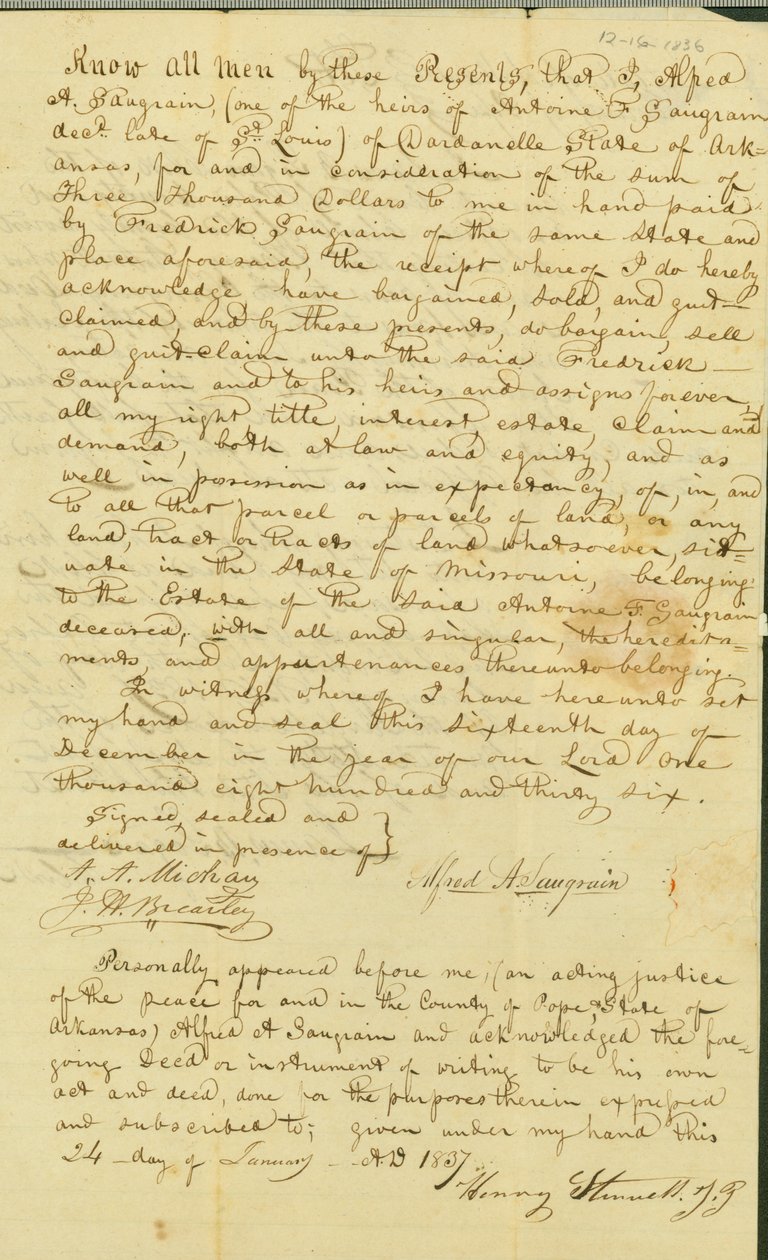 12-16-1836
Know all men by these Presents, that I, Alfred
A. Saugrain, (one of the heirs of Antoine F Saugrain
decd. late of St. Louis) of Dardanelle State of Ark=
ansas, for and in consideration of the sum of
Three Thousand Dollars to me in hand paid
by Fredrick Saugrain of the same State and
place aforesaid, the receipt whereof I do hereby
acknowledge, have bargained, sold, and quit–
claimed, and by these presents, do bargain, sell
and quit-claim unto the said Fredrick —
Saugrain and to his heirs and assigns forever,
all my right, title, interest, estate, claim and
demand, both at law and equity, and as
well in possession as in expectancy, of, in, and
to all that parcel or parcels of land, or any
land, tract or tracts of land whatsoever, sit=
uate in the State of Missouri, belonging
to the Estate of the said Antoine F. Saugrain
deceased, with all and singular, the heredita=
ments, and appurtenances thereunto belonging
In witness whereof I have hereunto set
my hand and seal this sixteenth day of
December in the year of our Lord one
thousand eight hundred and thirty six.
Signed, sealed and
delivered in presence of }
A. A. Michau
Alfred A. Saugrain
J. H. Brearley
Personally appeared before me, (an acting justice
of the peace for and in the County of Pope, & State of
Arkansas) Alfred A Saugrain and acknowledged the fore=
going Deed or instrument of writing to be his own
act and deed, done for the purposes therein expressed
and subscribed to; given under my hand this
24 – day of January – A.D 1837
Henry J.P